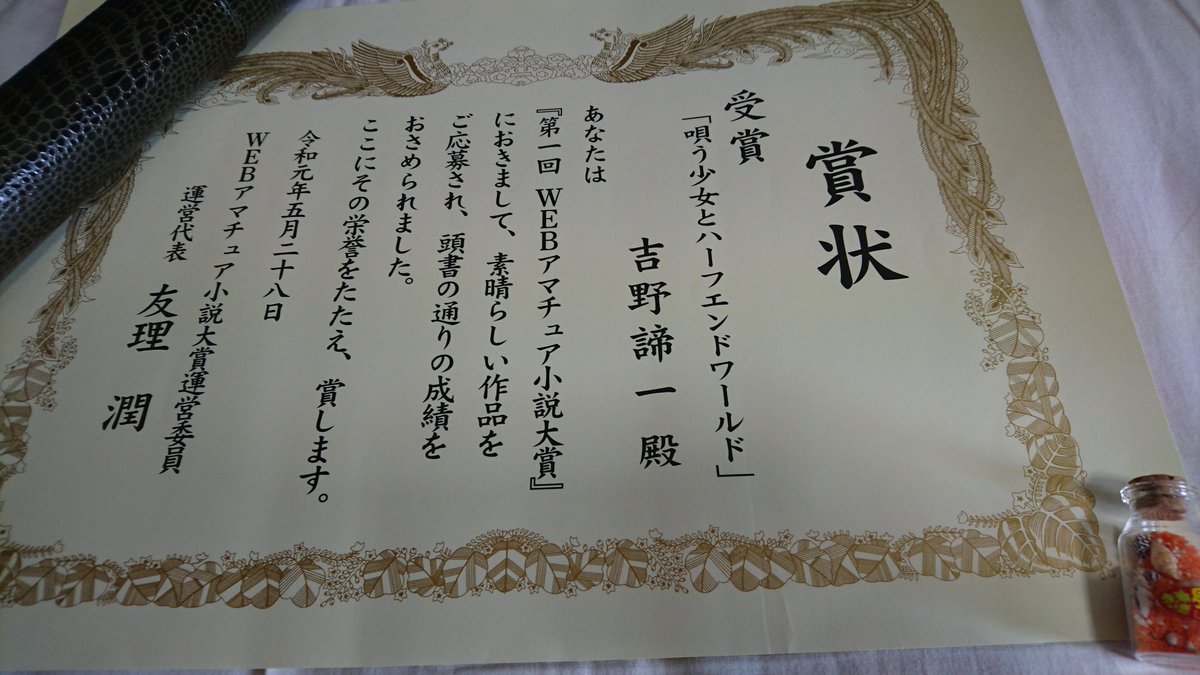 賞状
受賞
「唄う少女とハーフエンドワールド」
吉野諦一 殿
あなたは
『第一回 WEBアマチュア小説大賞』
におきまして、素晴らしい作品を
ご応募され、頭書の通りの成績を
おさめられました。
ここにその栄誉をたたえ、賞します。
令和元年五月二十八日
WEBアマチュア小説大賞運営委員
運営代表 友理 潤